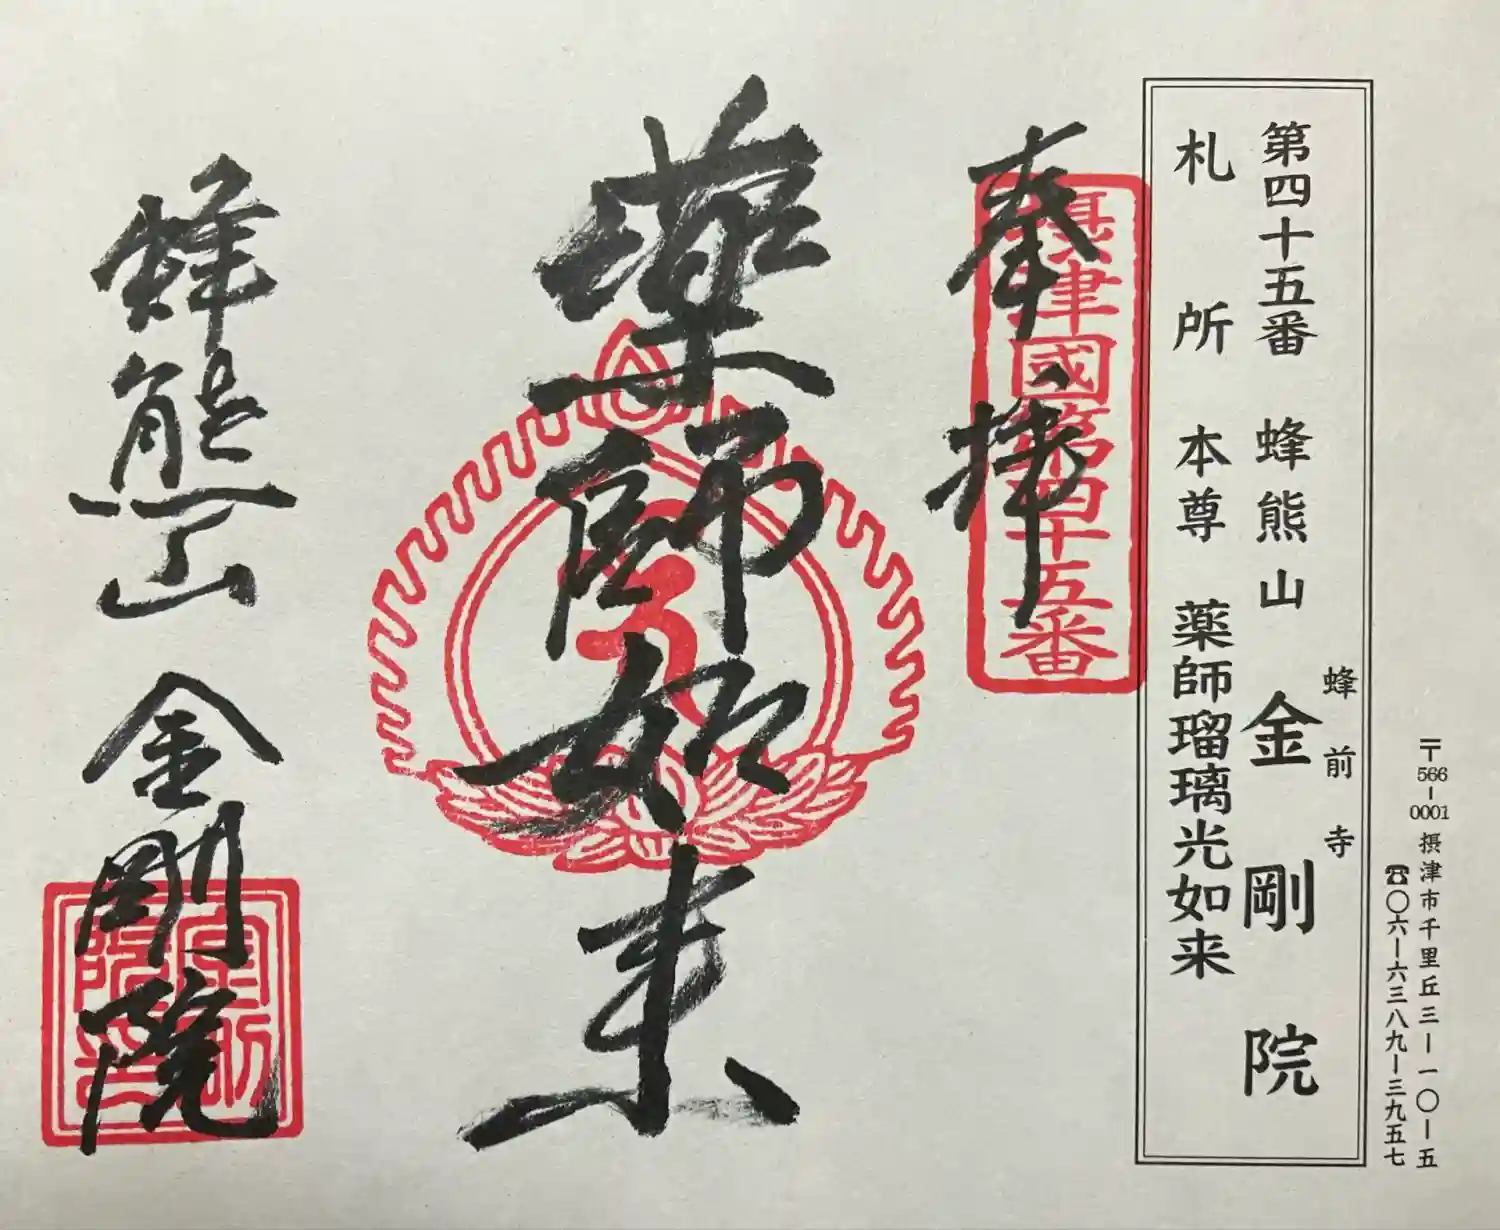 〒566-0001 摂津市千里丘三ー一〇ー五
☎〇六ー六三八九ー三九五七
蜂前寺
第四十五番 蜂熊山 金剛院
札所 本尊 薬師瑠璃光如来
奉拝
摂津國第四十五番
薬師如来
蜂熊山 金剛院
金剛院印